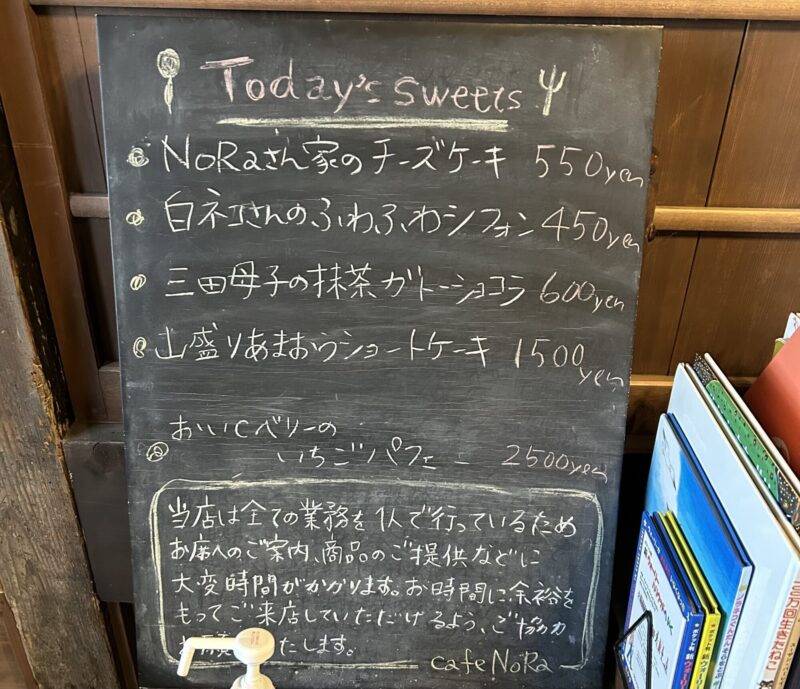 Today's sweets
NoRaさん家のチーズケーキ 550yen
白ネコさんのふわふわシフォン 450yen
三田母子の抹茶ガトーショコラ 600yen
山盛りあまおうショートケーキ 1500yen
おいCベリーの
いちごパフェ - 2500yen
当店は全ての業務を1人で行っているため
お席へのご案内、商品のご提供などに
大変時間がかかります。お時間に余裕を
もってご来店していただけるよう、ご協力
たします。
cafe NoRa
100万回生きたねこ